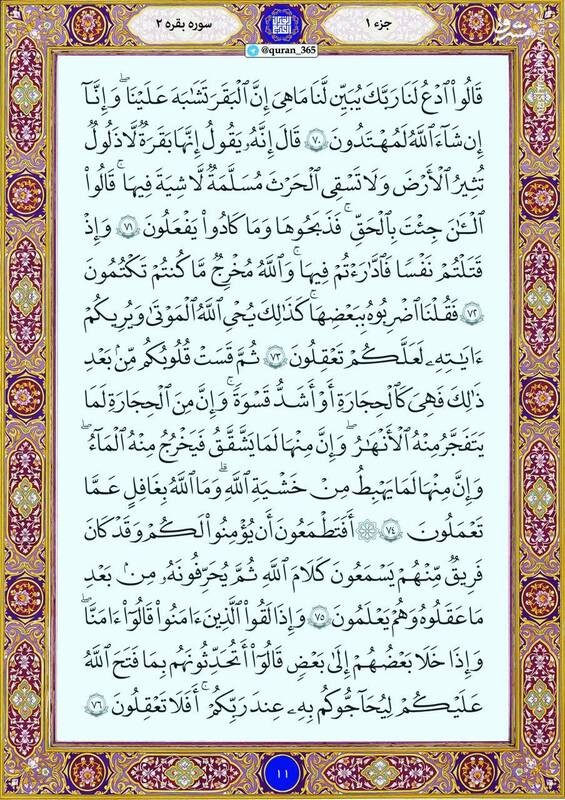 جزء ۱
سوره بقره ۲
@quran_365
قَالُوا۟ ٱدْعُ لَنَا رَبَّكَ يُبَيِّن لَّنَا مَا هِىَ إِنَّ ٱلْبَقَرَ تَشَٰبَهَ عَلَيْنَا وَإِنَّآ
إِن شَآءَ ٱللَّهُ لَمُهْتَدُونَ ۷۰ قَالَ إِنَّهُۥ يَقُولُ إِنَّهَا بَقَرَةٌ لَّا ذَلُولٌ
تُثِيرُ ٱلْأَرْضَ وَلَا تَسْقِى ٱلْحَرْثَ مُسَلَّمَةٌ لَّا شِيَةَ فِيهَا ۚ قَالُوا۟
ٱلْـَٰٔنَ جِئْتَ بِٱلْحَقِّ ۚ فَذَبَحُوهَا وَمَا كَادُوا۟ يَفْعَلُونَ ۷۱ وَإِذْ
قَتَلْتُمْ نَفْسًا فَٱدَّٰرَْٰٔتُمْ فِيهَا ۖ وَٱللَّهُ مُخْرِجٌ مَّا كُنتُمْ تَكْتُمُونَ
۷۲ فَقُلْنَا ٱضْرِبُوهُ بِبَعْضِهَا ۚ كَذَٰلِكَ يُحْىِ ٱللَّهُ ٱلْمَوْتَىٰ وَيُرِيكُمْ
ءَايَٰتِهِۦ لَعَلَّكُمْ تَعْقِلُونَ ۷۳ ثُمَّ قَسَتْ قُلُوبُكُم مِّنۢ بَعْدِ
ذَٰلِكَ فَهِىَ كَٱلْحِجَارَةِ أَوْ أَشَدُّ قَسْوَةً ۚ وَإِنَّ مِنَ ٱلْحِجَارَةِ لَمَا
يَتَفَجَّرُ مِنْهُ ٱلْأَنْهَٰرُ ۚ وَإِنَّ مِنْهَا لَمَا يَشَّقَّقُ فَيَخْرُجُ مِنْهُ ٱلْمَآءُ ۚ
وَإِنَّ مِنْهَا لَمَا يَهْبِطُ مِنْ خَشْيَةِ ٱللَّهِ ۗ وَمَا ٱللَّهُ بِغَٰفِلٍ عَمَّا
تَعْمَلُونَ ۷۴ أَفَتَطْمَعُونَ أَن يُؤْمِنُوا۟ لَكُمْ وَقَدْ كَانَ
فَرِيقٌ مِّنْهُمْ يَسْمَعُونَ كَلَٰمَ ٱللَّهِ ثُمَّ يُحَرِّفُونَهُۥ مِنۢ بَعْدِ
مَا عَقَلُوهُ وَهُمْ يَعْلَمُونَ ۷۵ وَإِذَا لَقُوا۟ ٱلَّذِينَ ءَامَنُوا۟ قَالُوٓا۟ ءَامَنَّا
وَإِذَا خَلَا بَعْضُهُمْ إِلَىٰ بَعْضٍ قَالُوٓا۟ أَتُحَدِّثُونَهُم بِمَا فَتَحَ ٱللَّهُ
عَلَيْكُمْ لِيُحَآجُّوكُم بِهِۦ عِندَ رَبِّكُمْ ۚ أَفَلَا تَعْقِلُونَ ۷۶
۱۱